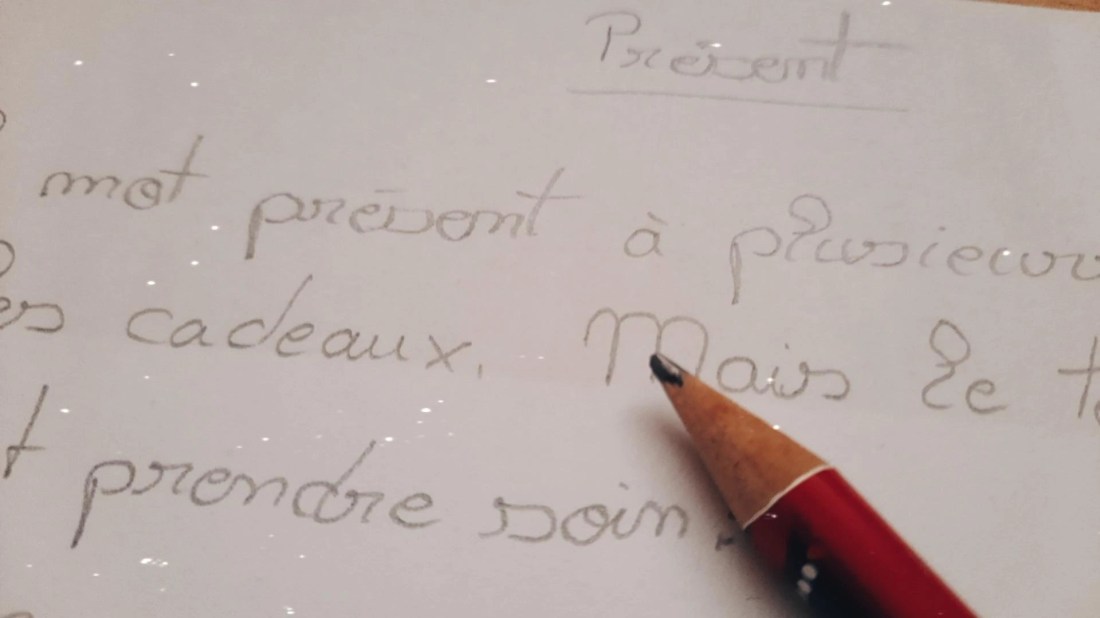 Présent
mot présent à plusieurs
les cadeaux. Mais le
prendre soin.